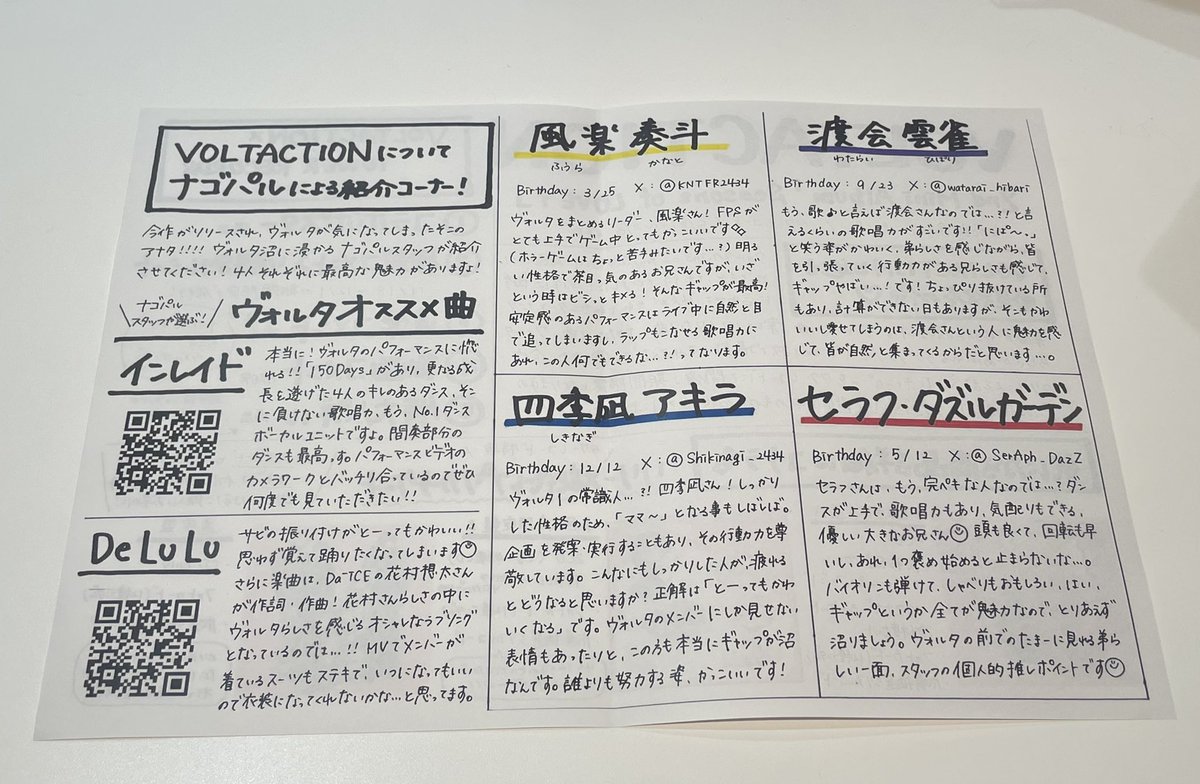 VOLTACTIONについて
ナゴパルによる紹介コーナー!
今作がリリースされ、ヴォルタが気になってしまったそこの
アナタ!!!! ヴォルタ沼に浸かるナゴパルスタッフが紹介
させてください! 4人それぞれに最高な魅力がありますよ!
ナゴパル
スタッフが選ぶ!
ヴォルタオススメ曲
インレイド
本当に!ヴォルタのパフォーマンスに惚
れる!!「150Days」があり、更なる成
長を遂げた4人のキレのあるダンス、そこ
に負けない歌唱力、もう、No.1ダンス
ボーカルユニットですよ。間奏部分の
ダンスも最高っす。パフォーマンスビデオの
カメラワークとバッチリ合っているのでぜひ
何度でも見ていただきたい!!
DeLuLu
サビの振り付けがとーってもかわいい!!
思わず覚えて踊りたくなってしまいます
さらに楽曲は、Da-iCEの花村想太さん
が作詞・作曲! 花村さんらしさの中に
ヴォルタらしさを感じるオシャレなラブソング
となっているのでは…!! MVでメンバーが
着ているスーツもステキで、いつになってもいい
ので衣装になってくれないかな…と思ってます。
風楽奏斗
ふうら かなと
Birthday:3/25 X:@KNTFR2434
ヴォルタをまとめるリーダー、風楽さん! FPSが
とても上手でゲーム中とってもかっこいいです
(ホラーゲームはちょっと苦手みたいです…?) 明る
い性格で茶目っ気のあるお兄さんですが、いざ
という時はビシっとキメる! そんなギャップが最高!
安定感のあるパフォーマンスはライブ中に自然と目
で追ってしまいますし、ラップもこなせる歌唱力に
あれ、この人何でもできるな…?!ってなります。
渡会雲雀
わたらい ひばり
Birthday:9/23 X:@watarai_hibari
もう、歌♪と言えば渡会さんなのでは…?!と言
えるくらいの歌唱力がすごいです!!「にぱ〜っ」
と笑う姿がかわいく、弟らしさを感じながら、皆
を引っ張っていく行動力がある兄らしさも感じて、
ギャップやばい…!です! ちょっぴり抜けている所
もあり、計算ができない日もありますが、そこもかわ
いいし愛せてしまうのは、渡会さんという人に魅力を感
じて、皆が自然と集まってくるからだと思います…。
四季凪アキラ
しきなぎ
Birthday:12/12 X:@Shikinagi_2434
ヴォルタ1の常識人…?! 四季凪さん! しっかり
した性格のため、「ママ〜」となる事もしばしば。
企画を発案・実行することもあり、その行動力を尊
敬しています。こんなにもしっかりした人が、疲れる
とどうなると思いますか? 正解は「とーってもかわ
いくなる」です。ヴォルタのメンバーにしか見せない
表情もあったりと、この方も本当にギャップが沼
なんです。誰よりも努力する姿、かっこいいです!
セラフ・ダズルガーデン
Birthday:5/12 X:@SerAph_DazZ
セラフさんは、もう、完ペキな人なのでは…? ダン
スが上手で、歌唱力もあり、気配りもできる、
優しい大きなお兄さん 頭も良くて、回転も早
いし、あれ、1つ褒め始めると止まらないな…。
バイオリンも弾けて、しゃべりもおもしろい、はい、
ギャップというか全てが魅力なので、とりあえず
沼りましょう。ヴォルタの前でのたまーに見れる弟ら
しい一面、スタッフの個人的推しポイントです